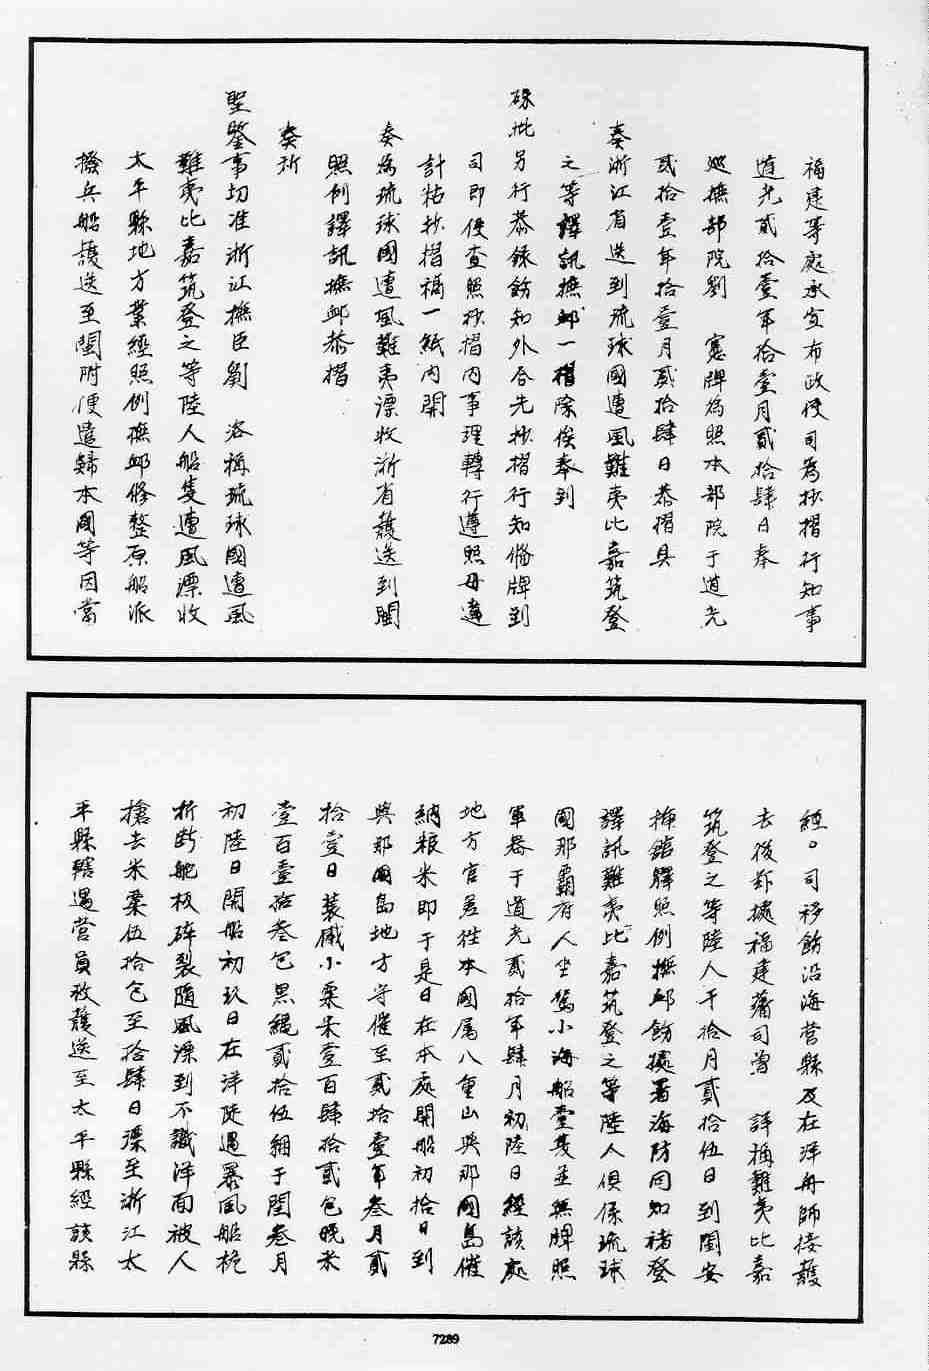 福建等處承宣布政使司為抄摺行知事
道光貳拾壹年拾壹月貳拾肆日奉
巡撫部院劉　憲牌為照本部院于道光
貳拾壹年拾壹月貳拾肆日恭摺具
奏浙江省送到琉球國遭風難夷比嘉筑登
之等譯訊撫卹一摺除俟奉到
硃批另行恭錄飭知外合先抄摺行知備牌到
司即便查照抄摺內事理轉行遵照毋違
計粘抄摺稿一紙內開
奏為琉球國遭風難夷漂收浙省護送到閩
照例譯訊撫卹恭摺
奏祈
聖鑒事切准浙江撫臣劉　洛稱琉球國遭風
難夷比嘉筑登之等陸人船隻遭風漂收
太平縣地方業經照例撫卹修整原船派
撥兵船護送至閩附便遣歸本國等因當
經。司移飭沿海營縣及在洋舟師接護
去後茲據福建藩司曾　詳稱難夷比嘉
筑登之等陸人于拾月貳拾伍日到閩安
插館驛照例撫卹飭據署海防同知褚登
譯訊難夷比嘉筑登之等陸人俱係琉球
國那霸府人坐駕小海船壹隻並無牌照
軍器于道光貳拾年肆月初陸日經該處
地方官差往本國属八重山與那國島催
納粮米即于是日在本處開船初拾日到
與那國島地方守催至貳拾壹年叁月貳
拾壹日裝載小粟米壹百肆拾貳包晚米
壹百壹拾叁包黑繩貳拾伍綑于閏叁月
初陸日開船初玖日在洋陡遇暴風船桅
折断舵板碎裂隨風漂到不識洋面被人
搶去米粟伍拾包至拾肆日漂至浙江太
平縣轄遇營員救護送至太平縣經該縣
7289